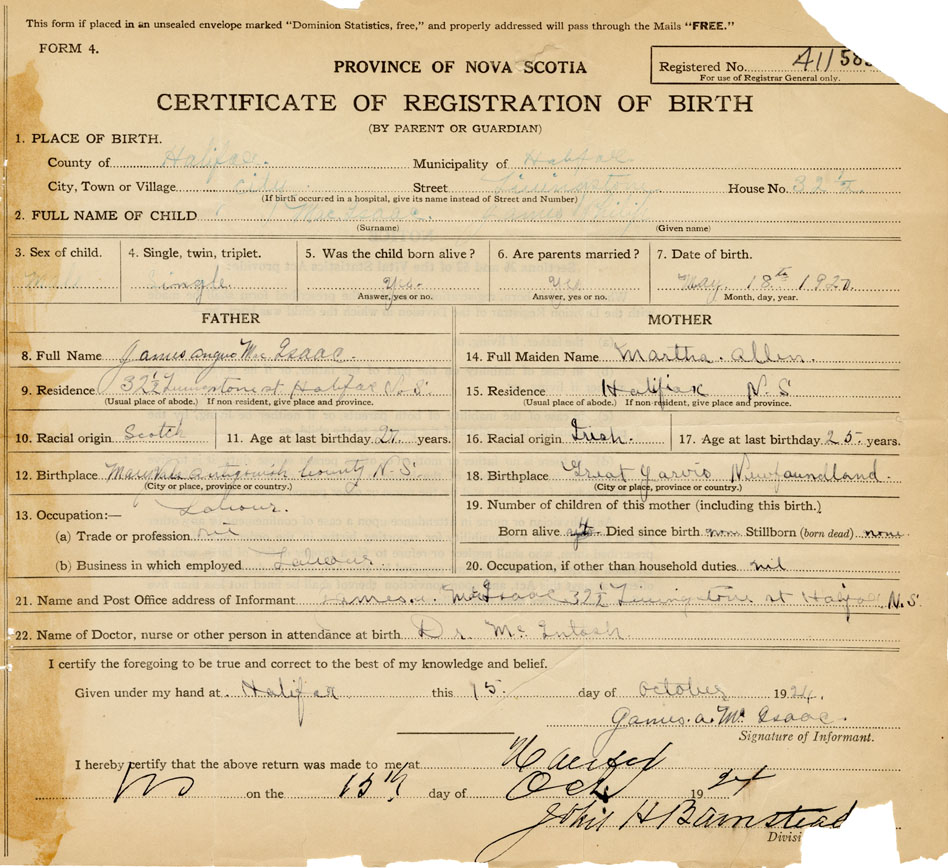 This form if placed in an unsealed envelope marked "Dominion Statistics, free," and properly addressed will pass through the Mails "FREE."
FORM 4.
PROVINCE OF NOVA SCOTIA
Registered No. 41158
For use of Registrar General only.
CERTIFICATE OF REGISTRATION OF BIRTH
(BY PARENT OR GUARDIAN)
1. PLACE OF BIRTH.
County of Halifax. Municipality of Halifax
City, Town or Village City Street Livingstone House No. 32 1/2.
(If birth occurred in a hospital, give its name instead of Street and Number)
2. FULL NAME OF CHILD Mac Isaac. James Philip
(Surname) (Given name)
3. Sex of child. 4. Single, twin, triplet. 5. Was the child born alive? 6. Are parents married? 7. Date of birth.
Male Single. Yes. Yes May. 18th 1920.
Answer, yes or no. Answer, yes or no. Month, day, year.
FATHER MOTHER
8. Full Name James Angus Mac Isaac. 14. Full Maiden Name Martha. Allen.
9. Residence 32 1/2 Livingstone st Halifax N.S. 15. Residence Halifax N.S
(Usual place of abode.) If non-resident, give place and province. (Usual place of abode.) If non-resident, give place and province.
10. Racial origin Scotch 11. Age at last birthday 27 years. 16. Racial origin Irish. 17. Age at last birthday 25 years.
12. Birthplace Maryvale Antigonish County N.S. 18. Birthplace Great Jarvis Newfoundland.
(City or place, province or country.) (City or place, province or country.)
13. Occupation:— Labour. 19. Number of children of this mother (including this birth.)
(a) Trade or profession nil Born alive Died since birth none Stillborn (born dead) none
(b) Business in which employed Labour 20. Occupation, if other than household duties nil
21. Name and Post Office address of Informant James. a. McIsaac 32 1/2 Livingstone st Halifax N.S.
22. Name of Doctor, nurse or other person in attendance at birth Dr. McIntosh.
I certify the foregoing to be true and correct to the best of my knowledge and belief.
Given under my hand at Halifax this 15 day of October 1924.
James. a. Mc Isaac.
Signature of Informant.
I hereby certify that the above return was made to me at Halifax
NS on the 15th day of Oct 1924
John H Barnstead
Divisi